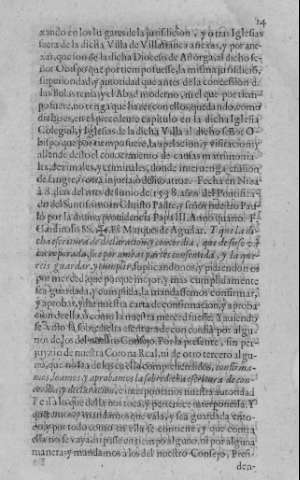 14
xando en los lugares de la jurisdicion, y otras Iglesias
fuera de la dicha Villa de Villafranca anexas, y por ane-
xar, que son de la dicha Diocesis de Astorga, al dicho se-
ñor Obispo que por tiempo fuesse, la misma jurisdicio,
superioridad, y autoridad que antes de la concession d
las Bulas tenia, y el Abad moderno, ni el que por tiem-
po fuere, no tenga que hazer con ellos, quedando, como
diximos, en el precedente capitulo en la dicha Iglesia
Colegial, y Iglesias de la dicha Villa al dicho señor O-
bispo que por tiempo fuere, la apelacion, y visitacion; y
allende desto el conocimiento de causas matrimonia
les, decimales, y criminales, donde intervenga efusion
de sangre, contra in
 Fecha en Niza
à 8. dias del mes de Iunio de 1538. años, del Pontifica
do del Santissimo in Christo Padre, y señor nuestro Pau-
lo por la divina providencia Papa III. Anno quarto.
Cardinalis SS. El Marques de Aguilar. Y que la di-
cha escritura de declaracion, y concordia, que de suso và
incorporada, fue por ambas partes consentida, y la que-
reis guardar, y cumplir, suplicandonos, y pidiendonos
por merced, que porque mejor, y mas cumplidamente
sea guardada, y cumplida, la mandassemos confirmar,
y aprobar, y dar nuestra carta de confirmacion, y aproba
cion della, ò como la nuestra merced fuesse. Y aviendo
se visto la sobredicha escritura de concordia por algu-
nos de los del nuestro Consejo. Por la presente, sin per-
juyzio de nuestra Corona Real, ni de otro tercero al gu-
no, que no sea de los en ella comprehendidos, confirma-
mos, loamos, y aprobamos la sobredicha escritura de con-
cordia, y declaracion, e interponemos nuestra autoridad
Real à lo que della nos toca, y pertenece interponella. Y
queremos, y mandamos que vala, y sea guardada en to-
do, y por todo como en ella se contiene, y que contra
ella no se vaya, ni passe en tiempo alguno, ni por alguna
manera, y mandamos à los del nuestro Consejo, Presi-
den-